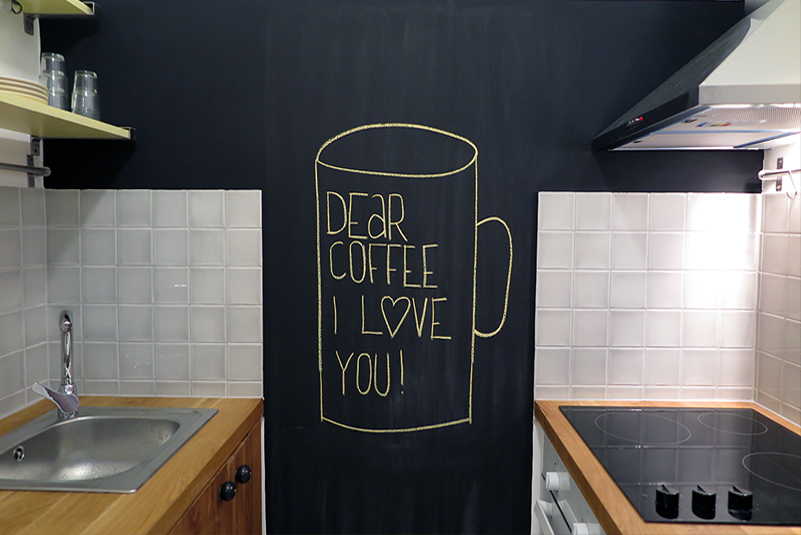 DEaR
COFFEE
I L♡VE
YOU!